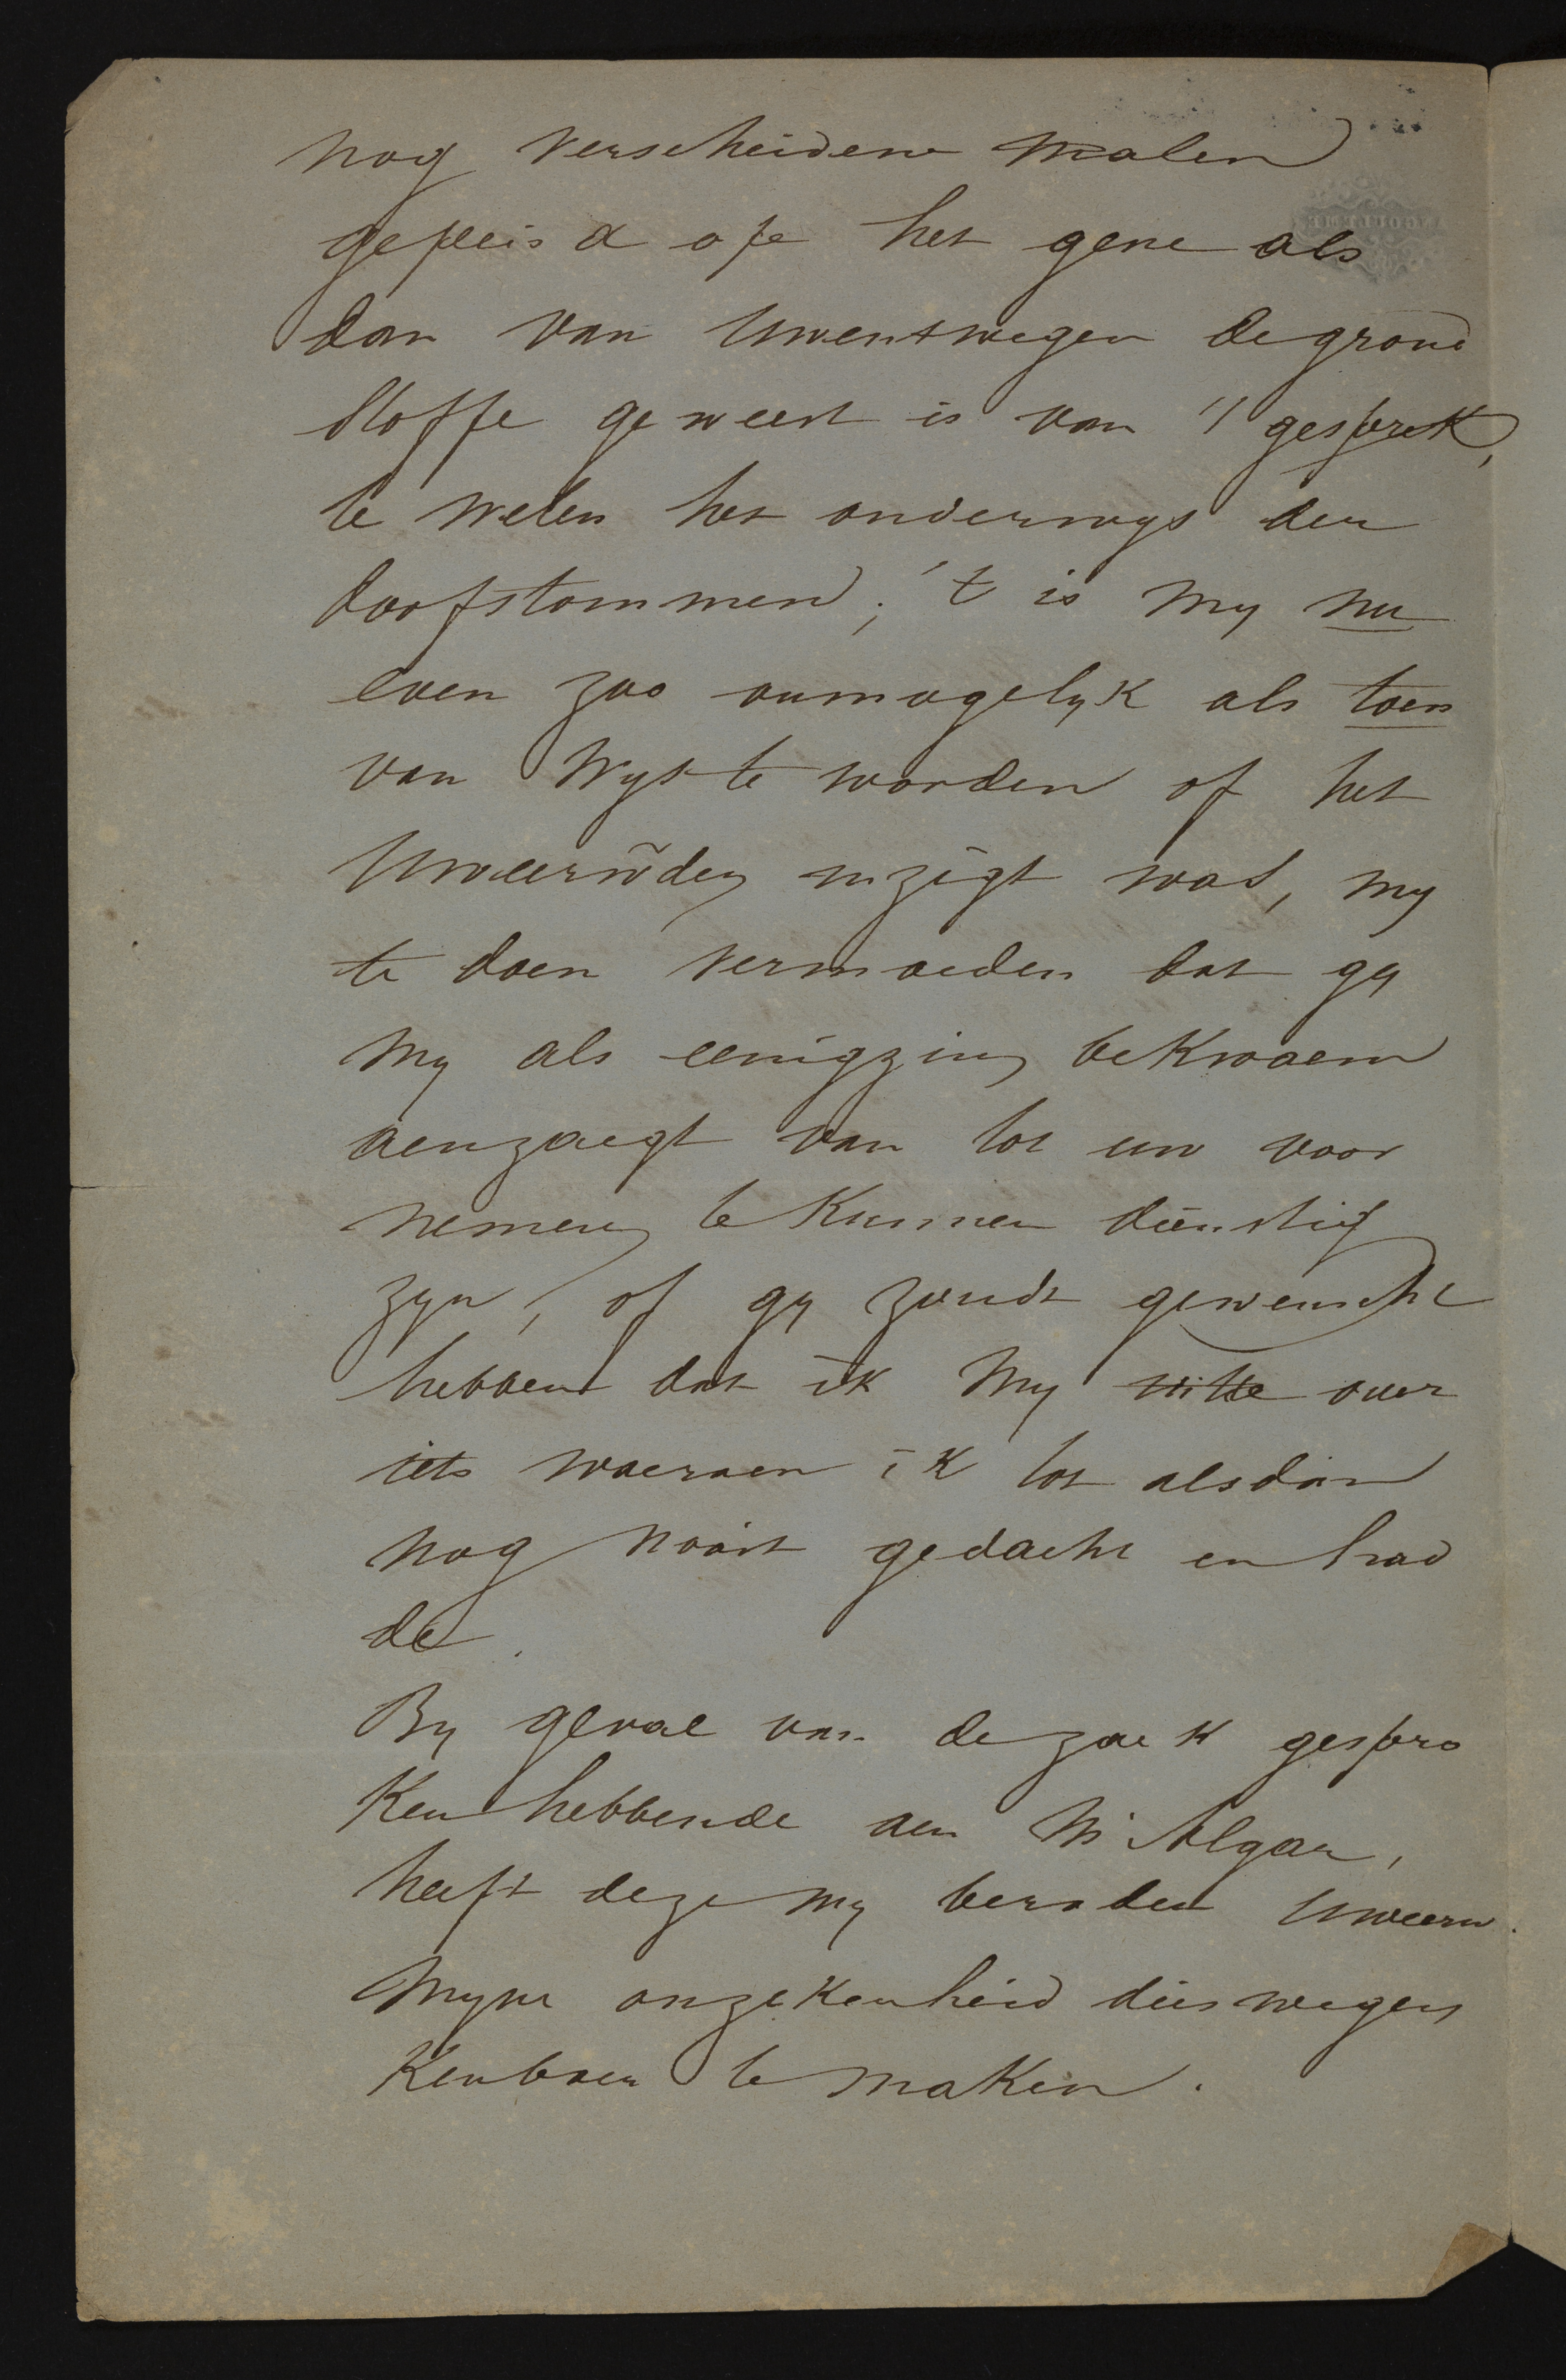 nog verscheidene malen
gepeisd op het gene als
dan van Uwentwegen de grond
stoffe geweest is van 't gesprek,
te weten het onderwys der
doofstommen; 't is my nu
even zoo onmogelyk als toen
van wys te worden of het
Uweerw̃den inzigt was, my
te doen vermoeden dat gy
my als eenigzins bekwaem
aenzaegt van tot uw voor
nemens te kunnen dienstig
zyn, of gy zoudt gewenscht
hebben dat ik my over
iets waeraen ik tot alsdan
nog nooit gedacht en had
de.
By geval van de zaek gespro
ken hebbende aen Mr Algar,
heeft deze my beraden Uweerw.
myne onzekerheid dieswegens
kenbaer te maken.